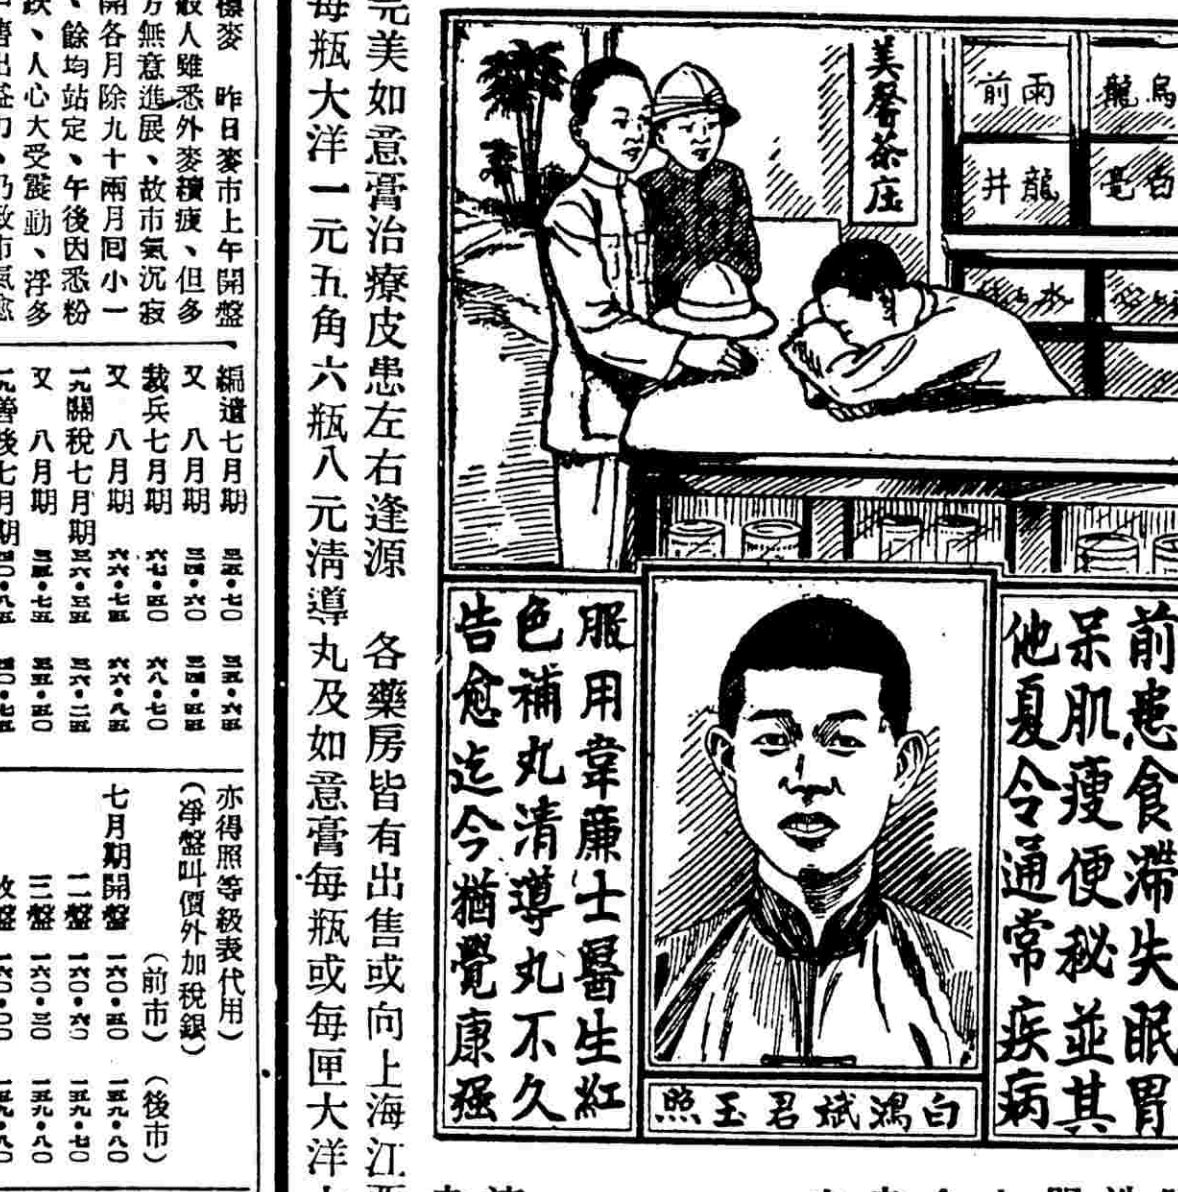 烏龍
雨前
白毫
龍井
美馨茶庄
前患食滯失眠胃
呆肌瘦便秘並其
他夏令通常疾病
白鴻斌君玉照
服用韋廉士醫生紅
色補丸清導丸不久
告愈迄今猶覺康强
元美如意膏治療皮患左右逢源 各藥房皆有出售或向上海江西
每瓶大洋一元五角六瓶八元清導丸及如意膏每瓶或每匣大洋
標麥 昨日麥市上午開盤
般人雖悉外麥續疲、但多
方無意進展、故市氣沉寂
開各月除九十兩月回小一
、餘均站定、午後因悉粉
跌、人心大受震動、浮多
編遣七月期 三五・七〇 三五・六五
又 八月期 三四・六〇 三四・四五
裁兵七月期 六七・四〇 六八・七〇
又 八月期 六六・七五 六六・八五
一九關稅七月期 三六・三五 三六・二五
又 八月期 三五・七五 三五・五〇
一九善後七月期 四〇・八五 四〇・七五
亦得照等級表代用)
(淨盤叫價外加稅銀)
(前市) (後市)
七月期開盤 一六〇・五〇 一五九・八〇
二盤 一六〇・六〇 一五九・七〇
三盤 一六〇・三〇 一五九・八〇
收盤 一六〇・〇〇 一五九・八〇